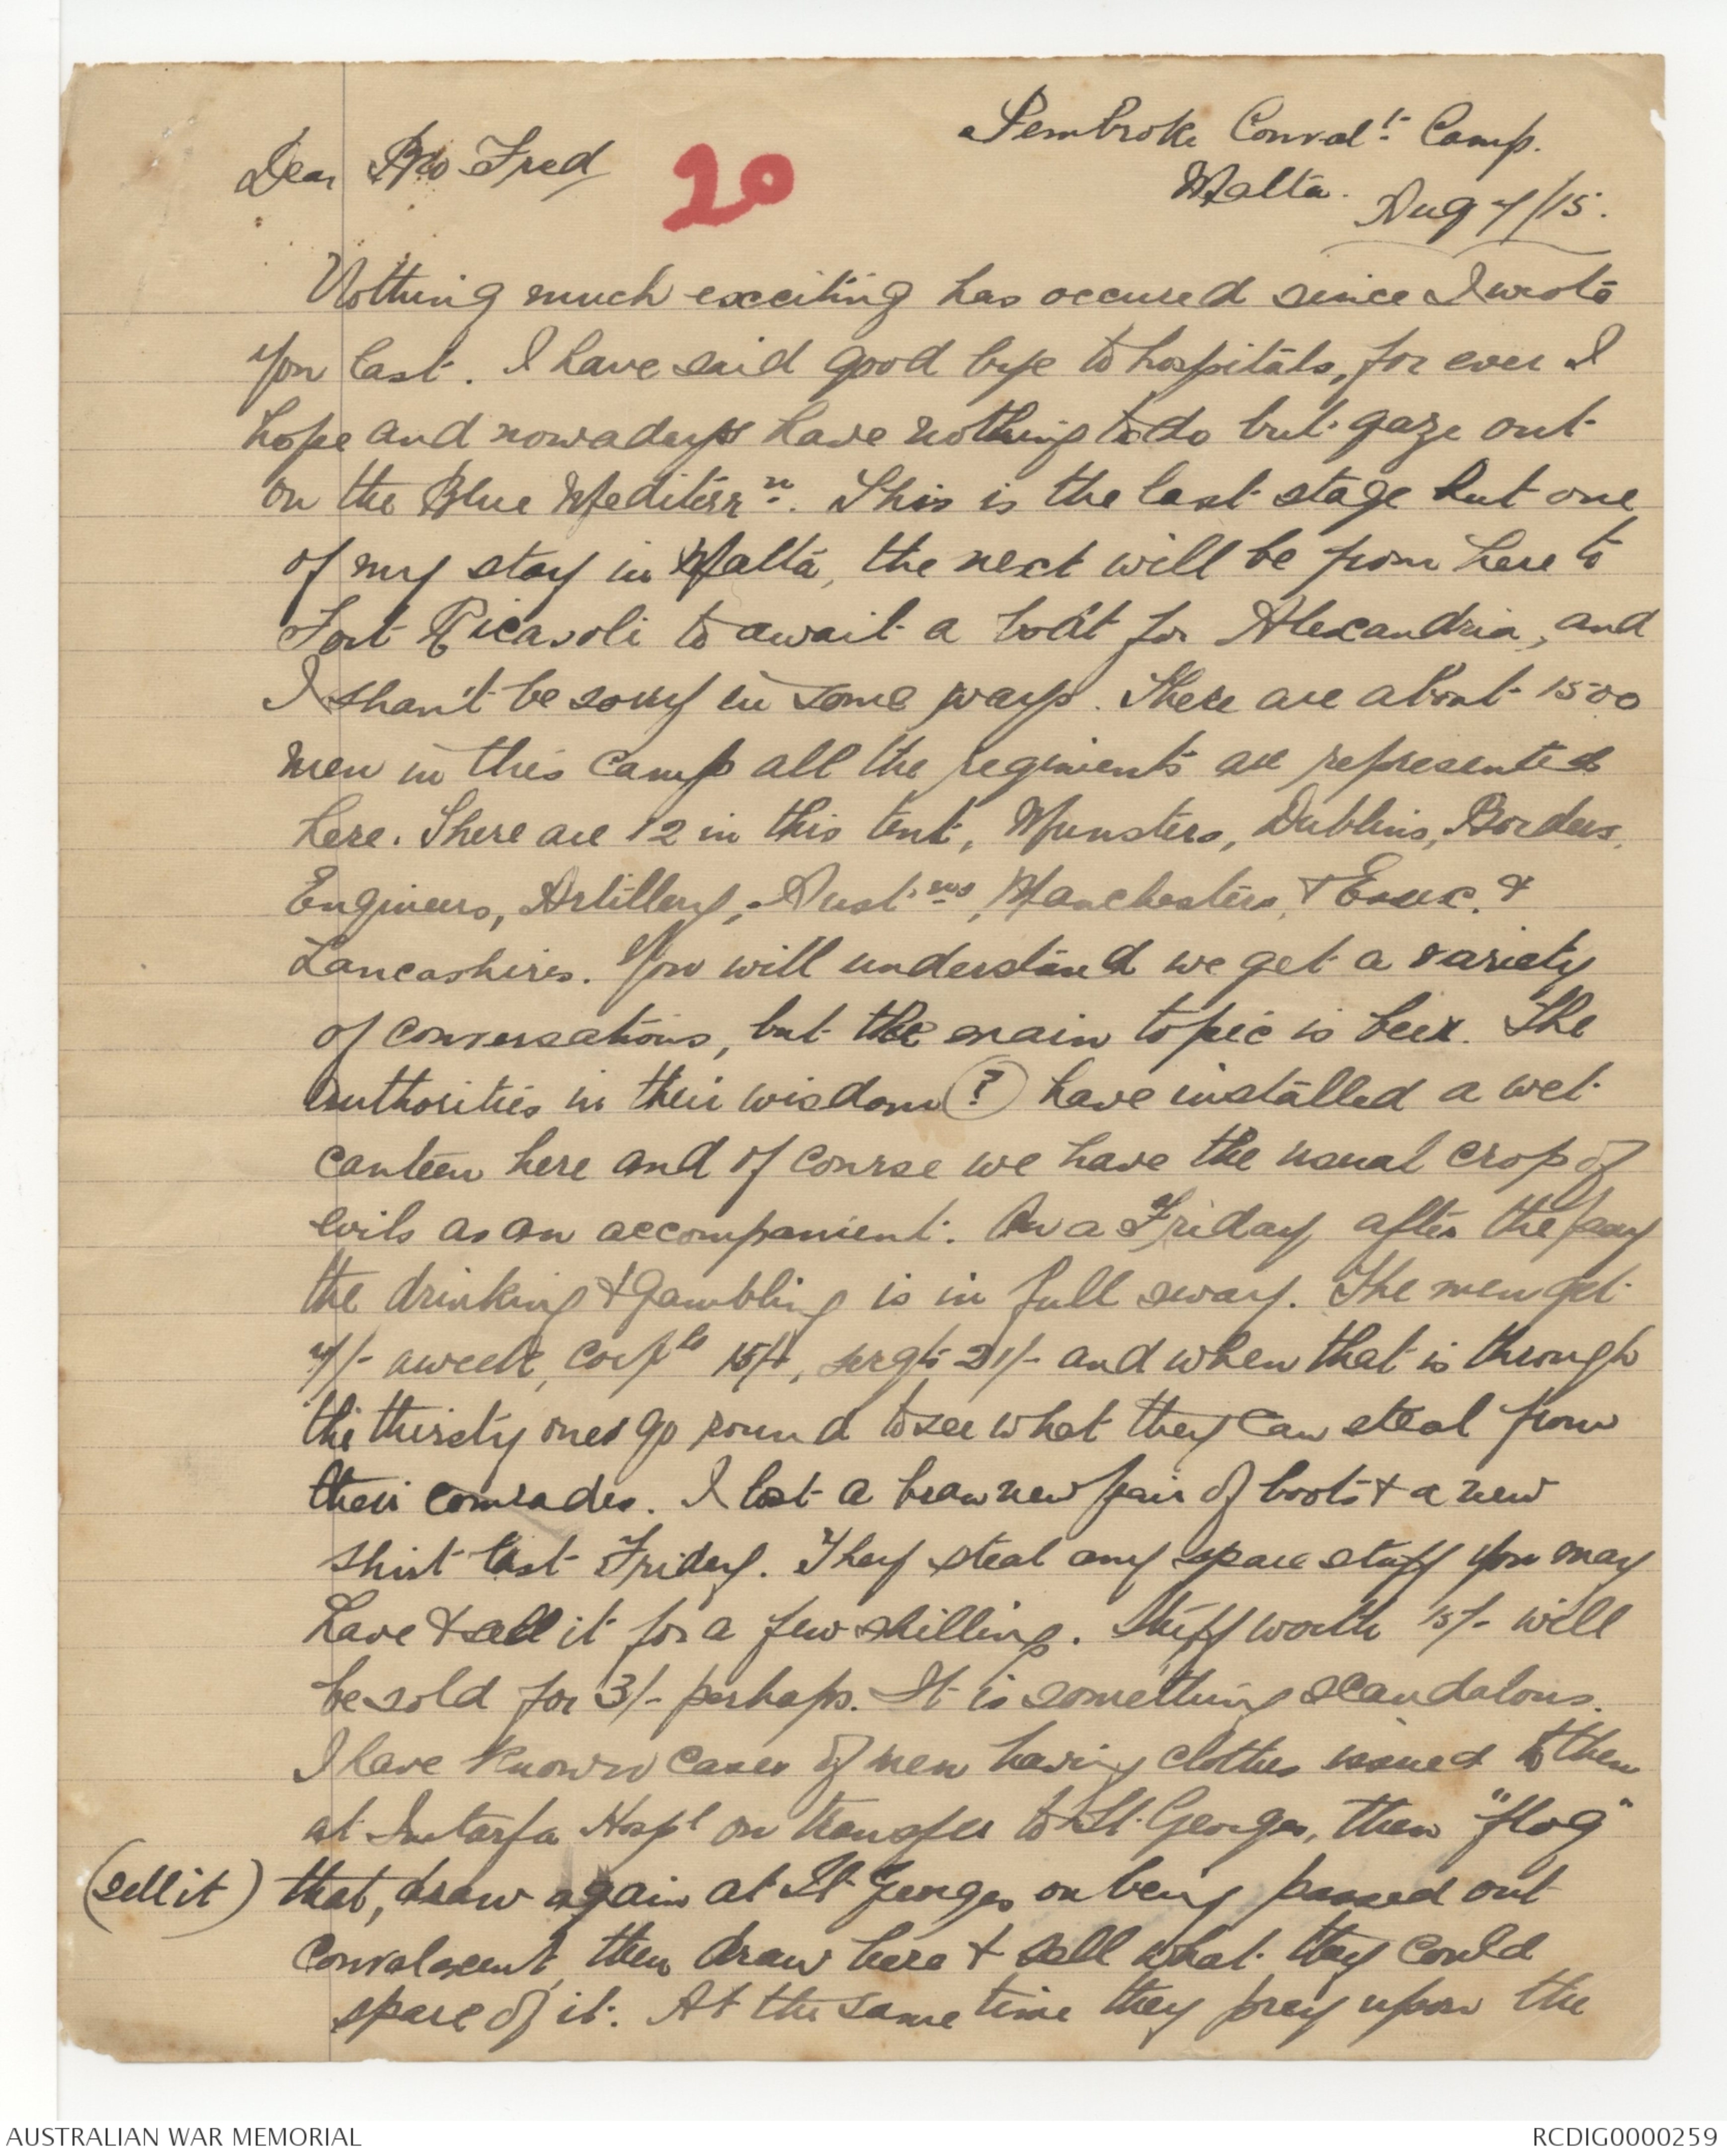 Pembroke Conval.t Camp.
Malta.
Aug 7/15.
Dear Bro Fred
20
Nothing much exciting has occured since I wrote
you last. I have said good bye to hospitals, for ever I
hope and nowadays have nothing to do but gaze out
on the Blue Mediterrn. This is the last stage but one
of my stay in Malta, the next will be from here to
Fort Ricasoli to await a boat for Alexandria, and
I shan't be sorry in some ways. There are about 1500
men in this camp all the regiments are represented
here. There are 12 in this tent, Munsters, Dublins, Borders,
Engineers, Artillery, Aust.ns, Manchesters, & Essex. &
Lancashires. You will understand we get a variety
of conversations, but the main topic is beer. The
authorities in their wisdom (?) have installed a wet
canteen here and of course we have the usual crop of
evils as an accompanient. On a Friday after the pay
the drinking & gambling is in full sway. The men get
7/- a week, corpls 15/-, sergts 21/- and when that is through
the thirsty ones go round to see what they can steal from
their comrades. I lost a bran new pair of boots & a new
shirt last Friday. They steal any spare stuff you may
have & sell it for a few shillings. Stuff worth 15/- will
be sold for 3/- perhaps. It is something scandalous.
I have known cases of men having clothes issued to them
at Imtarfa Hospl on transfer to St. Georges, then "flog"
(sell it) that, draw again at St Georges on being passed out
convalescent, then draw here & sell what they could
spare of it. At the same time they prey upon the
AUSTRALIAN WAR MEMORIAL
RCDIG0000259